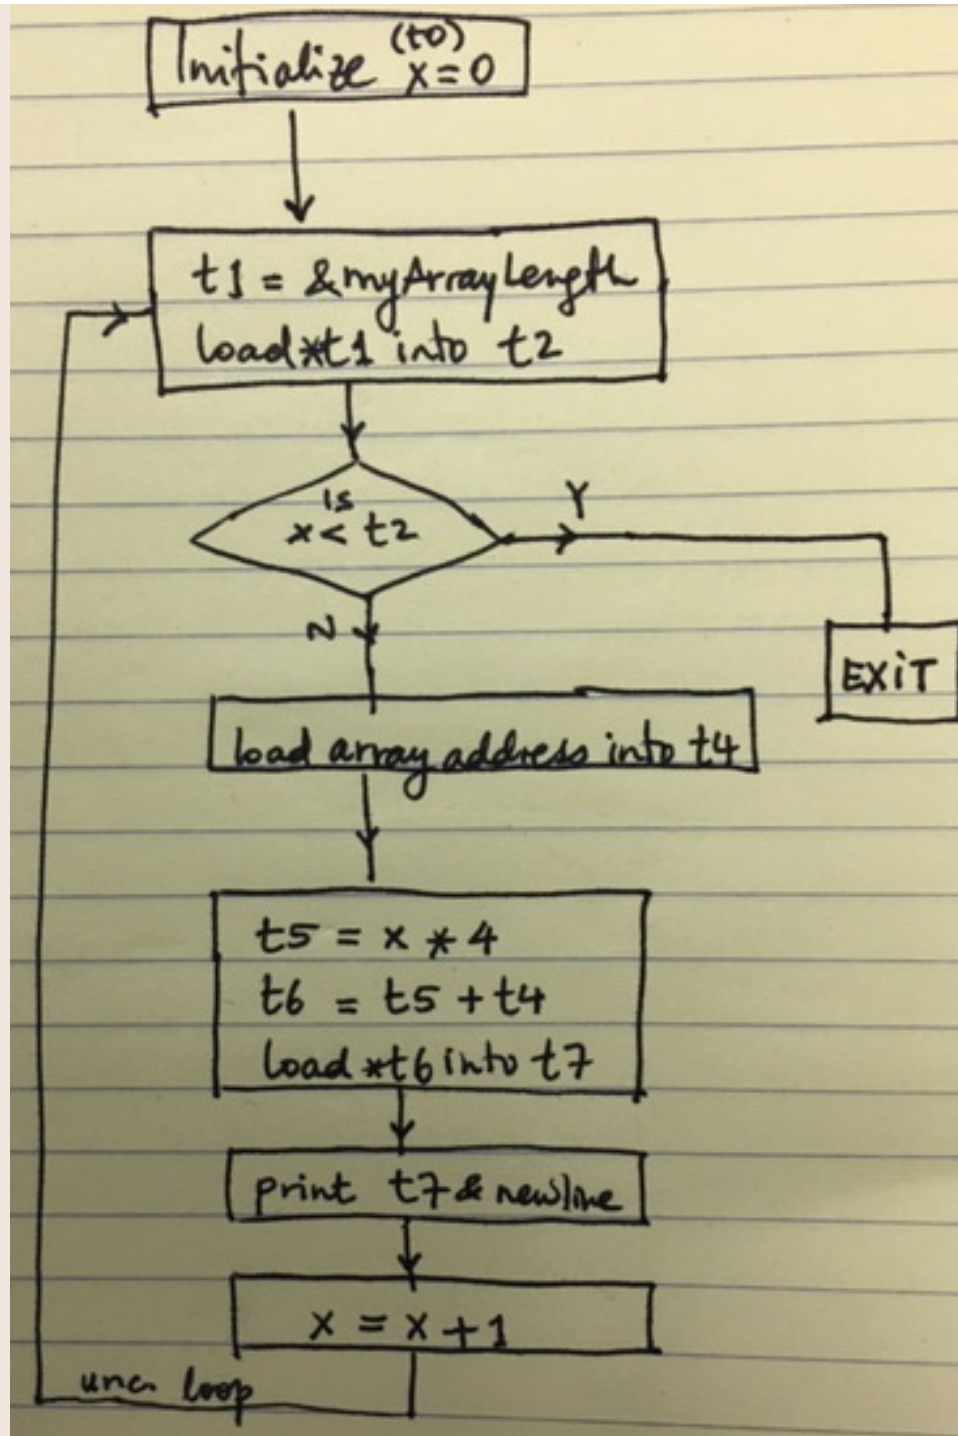 (t0)
Initialize x=0
t1 = &myArrayLength
load *t1 into t2
is
x < t2
Y
N
EXiT
load array address into t4
t5 = x * 4
t6 = t5 + t4
load *t6 into t7
print t7 & newline
x = x + 1
unc. loop